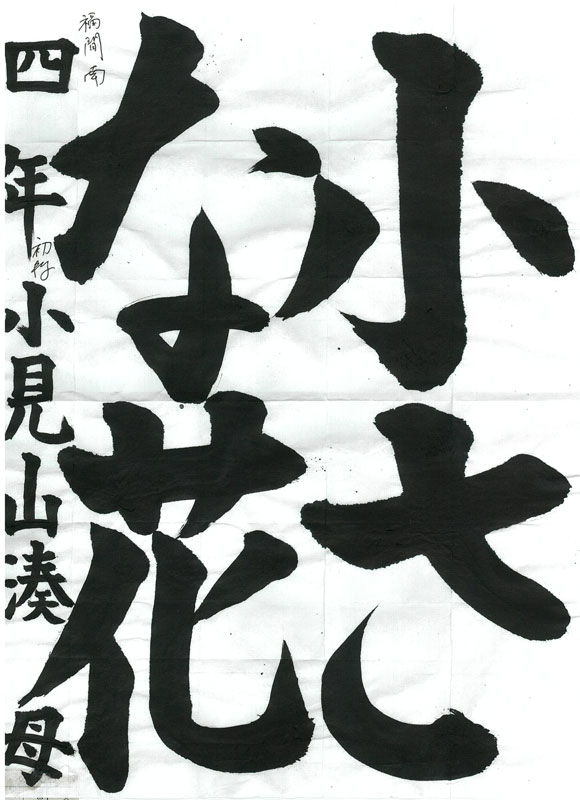 小さ
な花
福間南
四年小見山湊母
初段